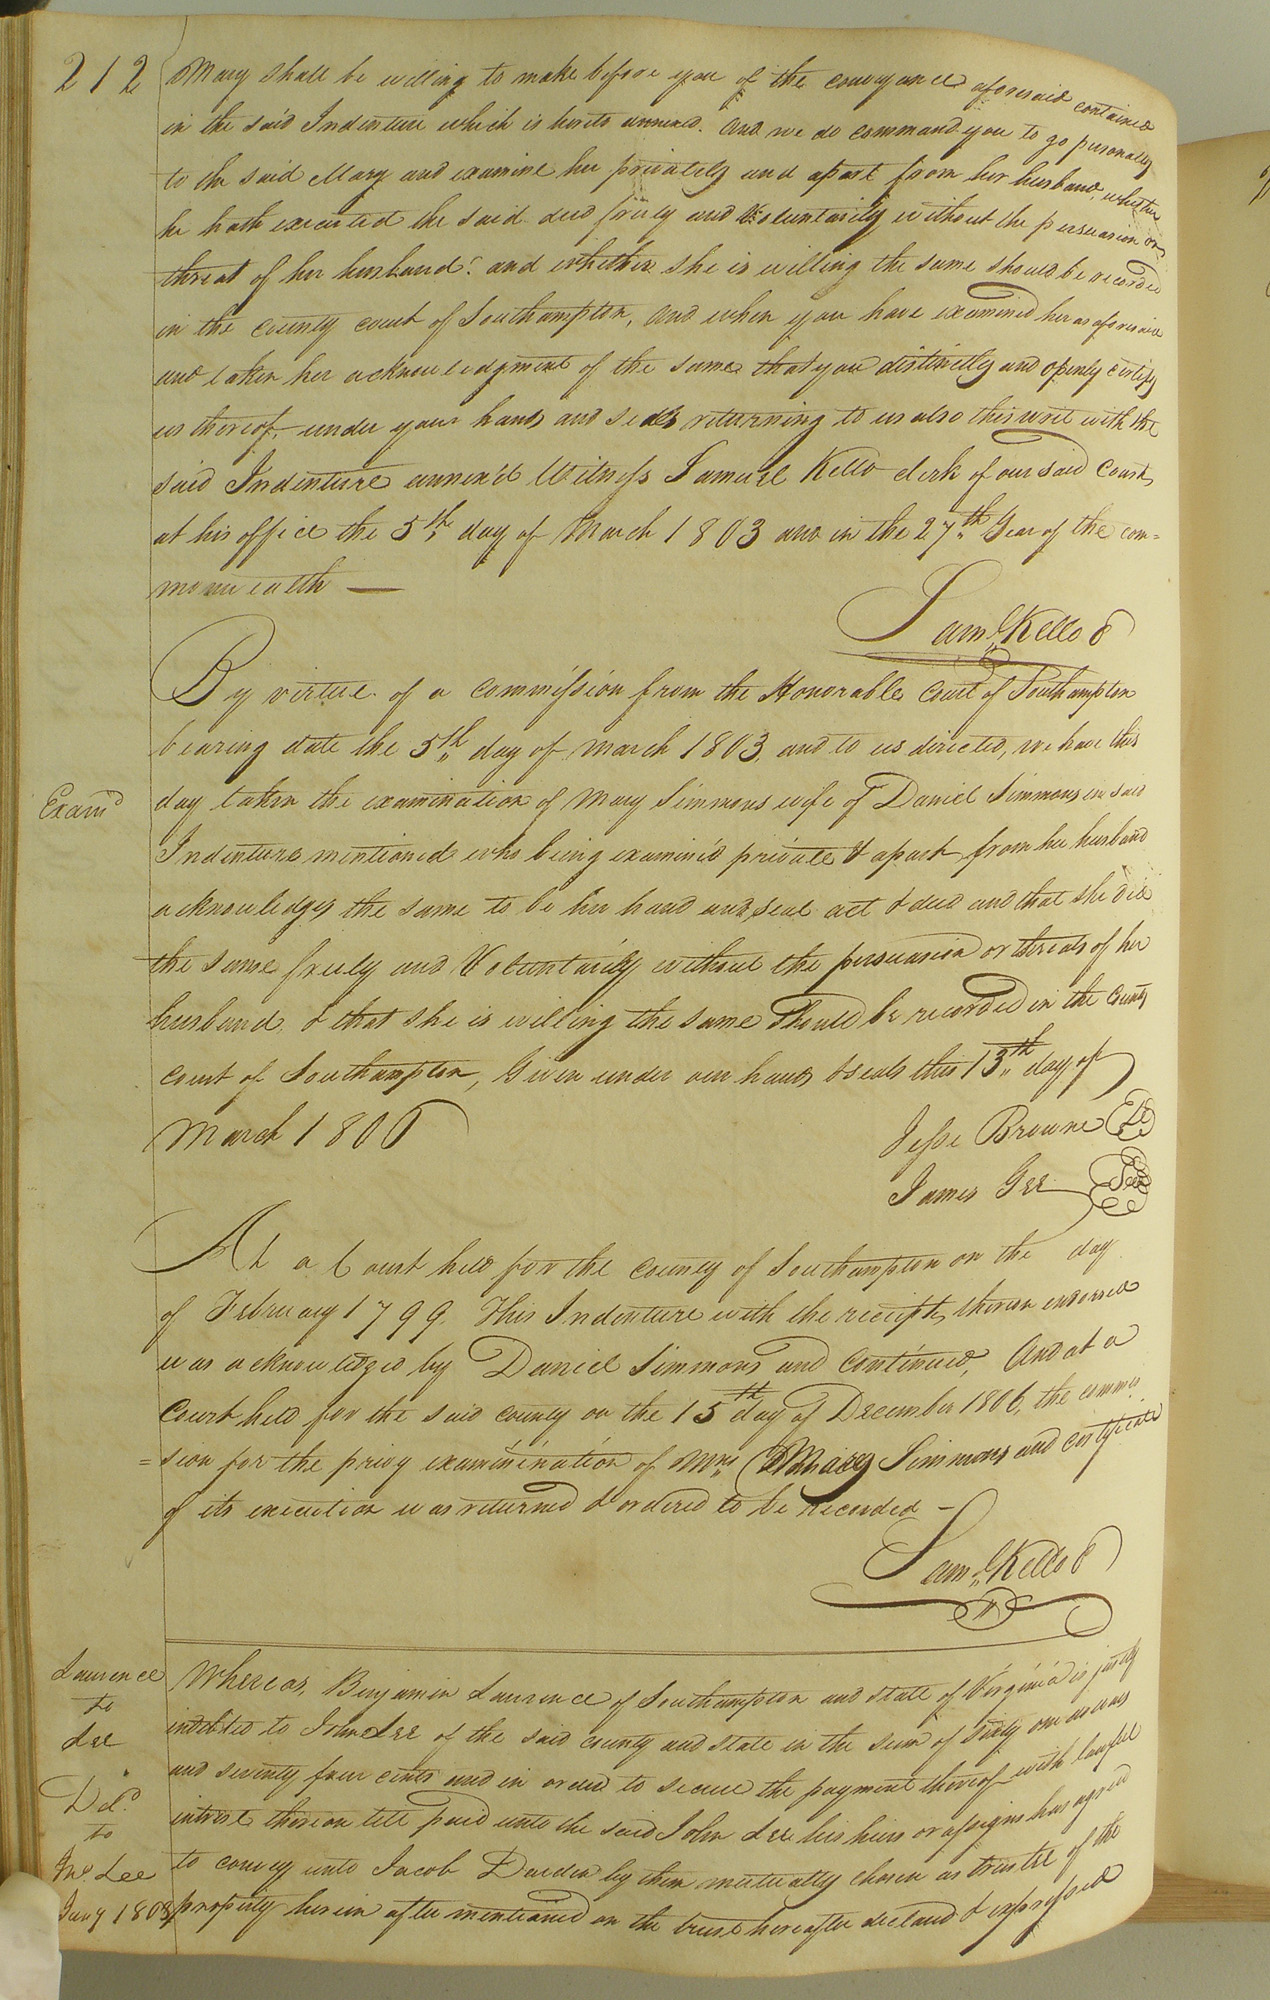 212
Mary shall be willing to make before you of the conveyance aforesaid contained
in the said Indenture which is hereto annexed. And we do command you to go personally
to the said Mary and examine her privately and apart from her husband, whether
he hath executed the said deed freely and Voluntarily without the persuasion or
threat of her husband? and whether she is willing the same should be recorded
in the county court of Southampton, and when you have examined her as aforesaid
and taken her acknowledgment of the same that you distinctly and openly certify
us thereof, under your hands and seals returning to us also this writ with the
said Indenture annex'd Witness Samuel Kello clerk of our said Court
at his office the 5th day of March 1803 and in the 27th Year of the com=
monwealth —
Saml Kello
By virtue of a commission from the Honorable Court of Southampton
bearing date the 5th day of March 1803, and to us directed, we have this
Examd
day taken the examination of Mary Simmons wife of Daniel Simmons in said
Indenture mentioned who being examin'd private & apart from her husband
acknowledges the same to be her hand and seal act & deed and that she did
the same freely and Voluntarily without the persuasion or threats of her
husband & that she is willing the same should be recorded in the County
court of Southampton, Given under our hands & seals this 13th day of
March 180
Jesse Browne
James Gee Seal
At a Court held for the county of Southampton on the day
of February 1799. This Indenture with the receipt thereon endorsed
was acknowledged by Daniel Simmons and Continued, And at a
Court held for the said county on the 15th day of December 1806, the commis
=sion for the privy examination of Mrs Mary Simmons and certificate
of its execution was returned & ordered to be recorded –
Saml Kello
Laurence
to
Lee
Whereas, Benjamin Laurence of Southampton and state of Virginia is justly
indebted to John Lee of the said county and state in the sum of Sixty one
and seventy four cents and in order to secure the payment thereof with lawful
Deld
to
Jno. Lee
Jany 1808
interest thereon till paid unto the said John Lee his heirs or assigns has agreed
to convey unto Jacob Darden by them mutually chosen as trustee of the
property herein after mentioned on the trust hereafter declared & expressed